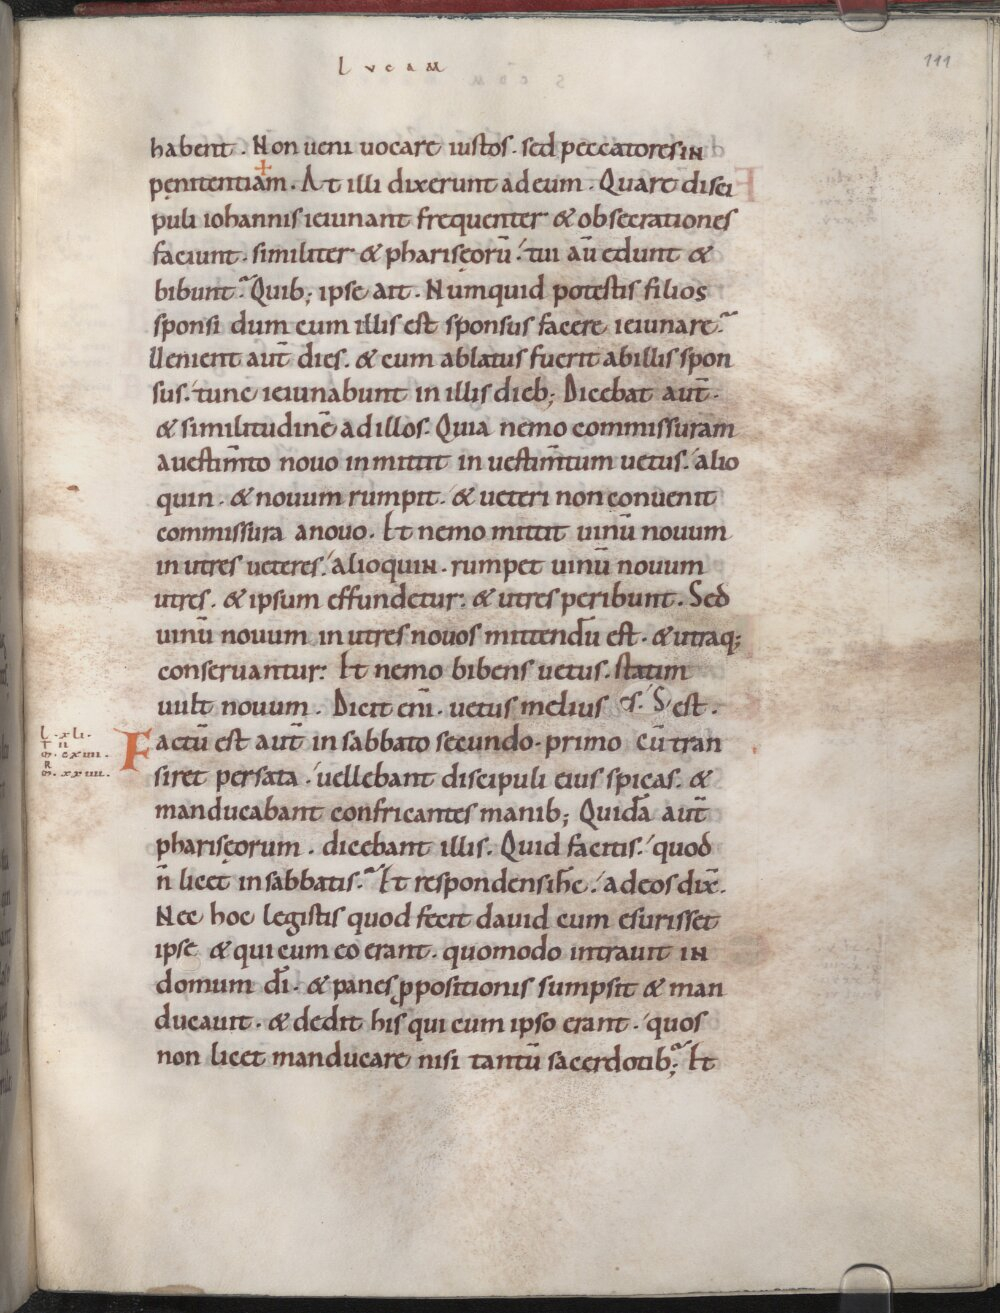 LUCAM
111
habent . Non ueni uocare iustos . sed peccatores in
penitentiam . At illi dixerunt ad eum . Quare disci
puli iohannis ieiunant frequenter & obsecrationes
faciunt . similiter & phariseorū . tui aū edunt &
bibunt . Quib; ipse ait . Numquid potestis filios
sponsi dum cum illis est sponsus facere ieiunare
Uenient aut̄ dies . & cum ablatus fuerit ab illis spon
sus . tunc ieiunabunt in illis dieb; Dicebat aut̄ .
& similitudinē ad illos . Quia nemo commissuram
a uestim̄to nouo inmittit in uestim̄tum uetus . alio
quin . & nouum rumpit . & ueteri non conuenit
commissura a nouo . Et nemo mittit uinū nouum
in utres ueteres . alioquin . rumpet uinū nouum
utres . & ipsum effundetur : & utres peribunt . Sed
uinū nouum in utres nouos mittendū est . & utraq;
conseruantur : Et nemo bibens uetus . statim
uult nouum . Dicit eni . uetus melius est .
L . xli .
Factū est aut̄ in sabbato secundo . primo cū tran
siret per sata . uellebant discipuli eius spicas . &
manducabant confricantes manib; Quidā aut̄
phariseorum . dicebant illis . Quid facitis . quod
n̄ licet in sabbatis . Et respondens ihc̄ . ad eos dix̄ .
Nec hoc legistis quod fecit dauid cum esurisset
ipse & qui cum eo erant . quomodo intrauit in
domum dī . & panes ꝓpositionis sumpsit & man
ducauit . & dedit his qui cum ipso erant . quos
non licet manducare nisi tantū sacerdotib; Et